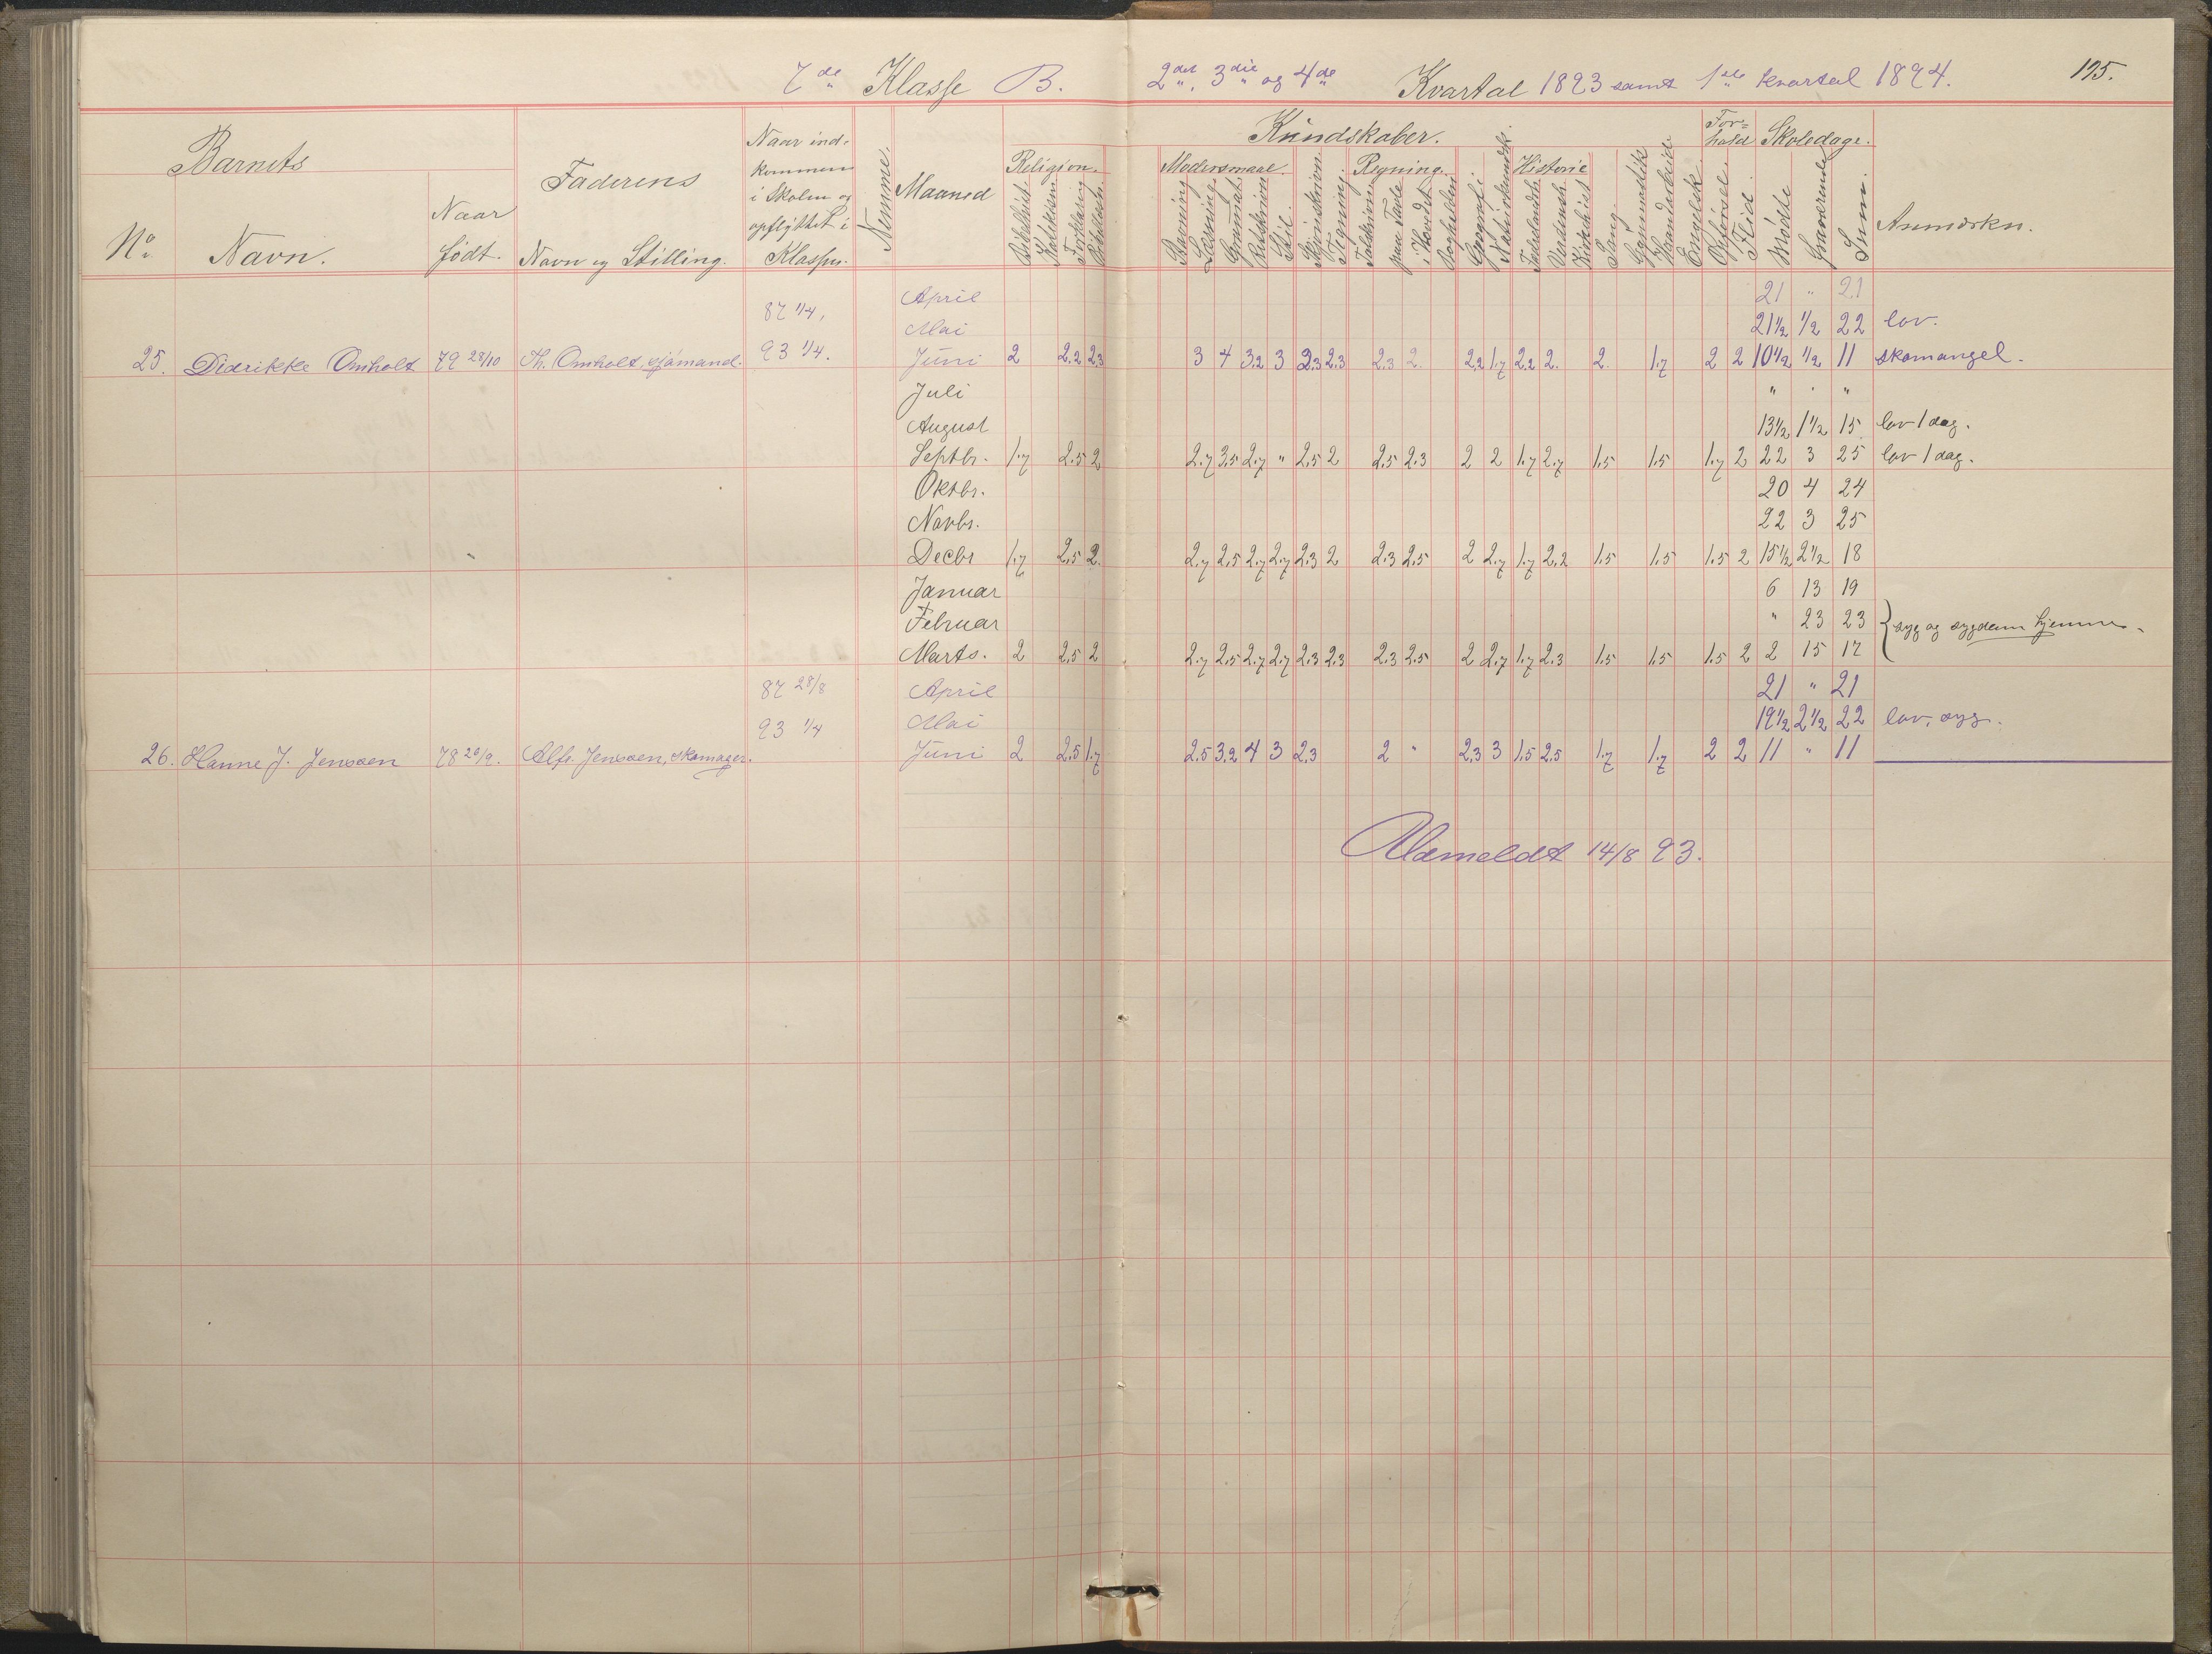 7de Klasse B. 2det, 3die og 4de Kvartal 1893 samt 1ste kvartal 1894. 195.
Barnets Faderens Naar ind-kommen i Skolen og opflyttet i Klassen. Nemme. Maaned Religion. Kundskaber. For-hold Skoledage. Anmærkn.
No. Navn. Naar født. Navn og Stilling.
Bibelhist. Katekism. Forklaring
Modersmaal. Regning. Historie
Læsning Grammat. Retskrivn. Stil. Skjønskrivn. Tegning. paa Tavle i Hovedet Bogholderi Geografi Naturkundsk. Fædrelandsh. Verdensh. Kirkehist. Sang. Gymnastik Haandarbeide Engelsk Opførsel. Flid. Mødte Fraværende Sum.
87 1/4, April 21 " 21
Mai 21½ ½ 22 lov.
25. Didrikke Omholt 79 28/10 Th. Omholt, sjømand. 93 1/4. Juni 2 2.2 2.3 3 4 3.2 3 2.3 2.3 2.3 2. 2.2 1.7 2.2 2. 2. 1.7 2 2 10½ ½ 11 skomangel.
Juli " " "
August 13½ 1½ 15 lov 1 dag.
Septbr. 1.7 2.5 2 2.7 3.5 2.7 " 2.5 2 2.5 2.3 2 2 1.7 2.7 1.5 1.5 1.7 2 22 3 25 lov 1 dag.
Oktbr. 20 4 24
Novbr. 22 3 25
Decbr 1.7 2.5 2. 2.7 2.5 2.7 2.7 2.3 2 2.3 2.5 2 2.7 1.7 2.2 1.5 1.5 1.5 2 15½ 2½ 18
Januar 6 13 19
Februar " 23 23 syg og sygdom hjemme.
Marts. 2 2.5 2 2.7 2.5 2.7 2.7 2.3 2.3 2.3 2.5 2 2.7 1.7 2.3 1.5 1.5 1.5 2 2 15 17
87 28/8 April 21 " 21
93 1/4 Mai 19½ 2½ 22 lov, syg.
26. Hanne J. Jenssen 78 20/9. Alfr. Jenssen, skomager. Juni 2 2.5 1.7 2.5 3.2 4 3 2.3 2 " 2.3 3 1.5 2.5 1.7 1.7 2 2 11 " 11
Udmeldt 14/8 93.